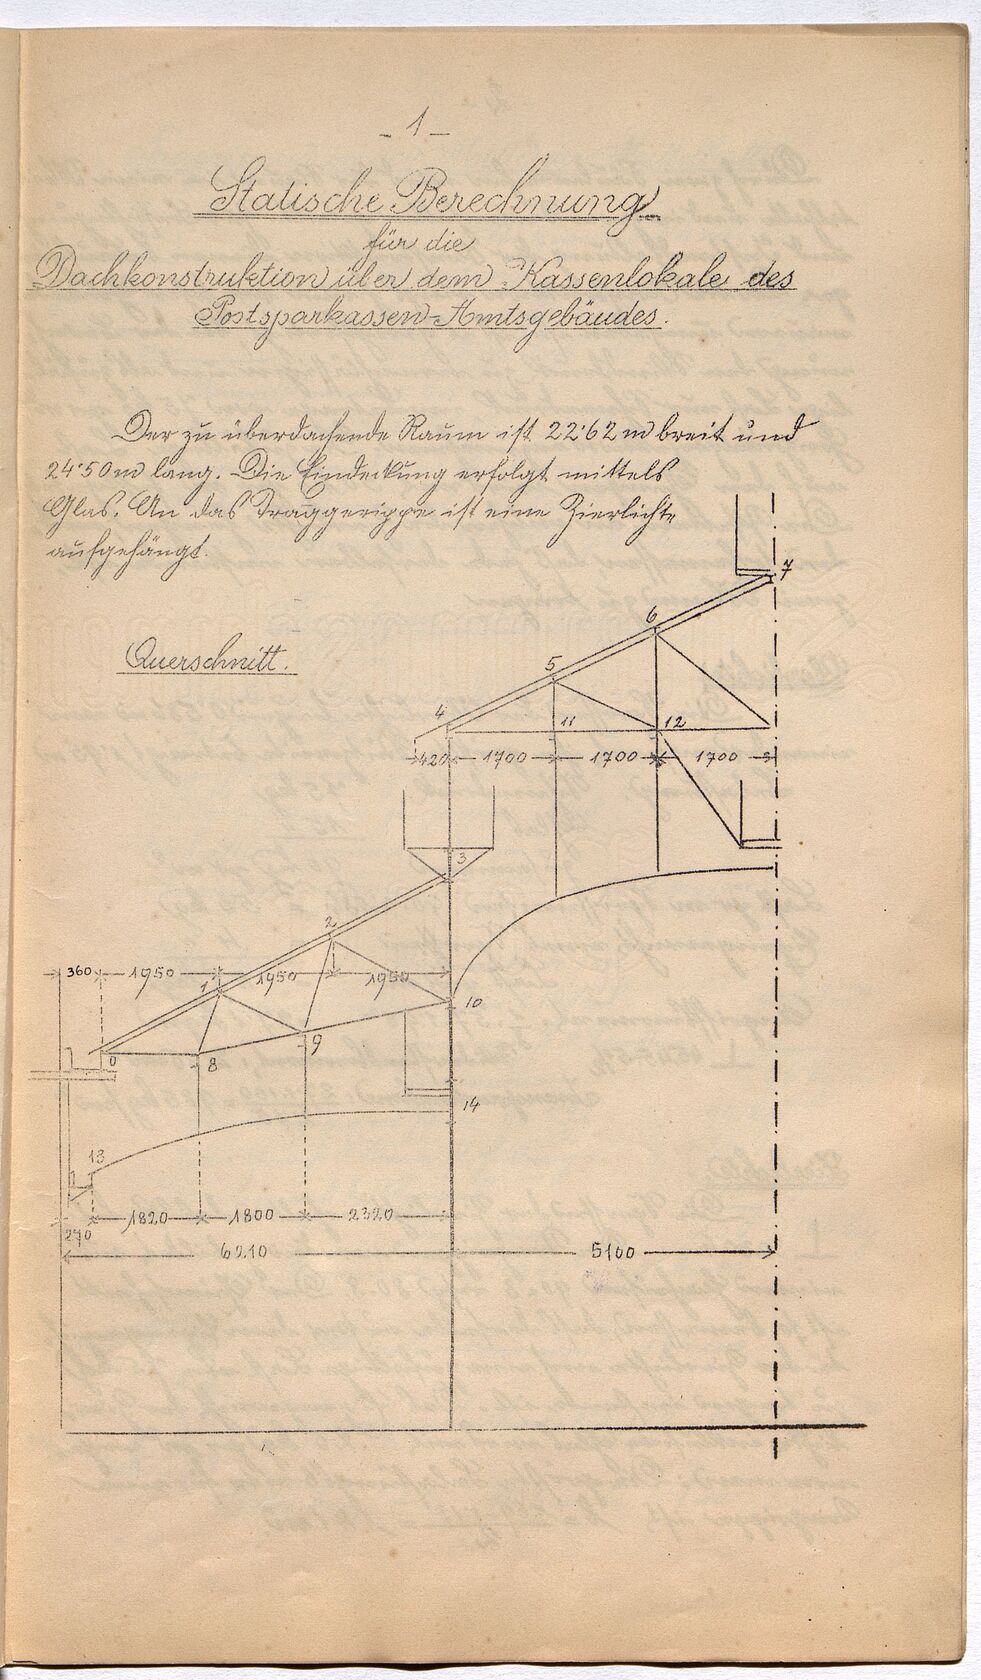 - 1 -
Statische Berechnung
für die
Dachkonstruktion über dem Kassenlokale des
Postsparkassen-Amtsgebäudes.
Der zu überdachende Raum ist 22·62 m breit und
24·50 m lang. Die Eindeckung erfolgt mittels
Glas. An das Traggerippe ist eine Zierlichte
aufgehängt.
7
6
Querschnitt.
5
4
11
12
420
1700
1700
1700
3
2
360
1950
1950
1950
1
10
9
0
8
14
13
1820
1800
2320
270
6210
5100